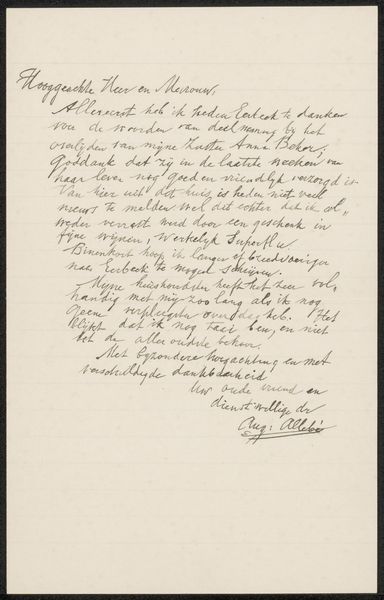 Hooggeachte Heer en Mevrouw,
Allereerst heb ik heden Eerbeek te danken
voor de woorden van deelneming bij het
overlijden van mijne zuster Anna Beker;
Goddank dat zij in de laatste weeken van
haar leven nog goed en vriendlijk verzorgd is.
Van hier uit dit huis, is heden niet veel
nieuws te melden wel dit echter dat ik al
weder verrast werd door een geschenk in
fijne wijnen, werkelijk Superflu.
Binnenkort hoop ik langer of breedvoeriger
naar Eerbeek te mogen schrijven.
Mijne huishoudster heeft het zeer vol,
handig met mij zoo lang als ik nog
geene verpleegster over de heb. Het
blijkt dat ik nog taai ben, en niet
tot de aller oudste behoor.
Met byzondere hoogachting en met
verschuldigde dankbaarheid
Uw oude vriend en
dienstwillige dr
Aug: Allebé